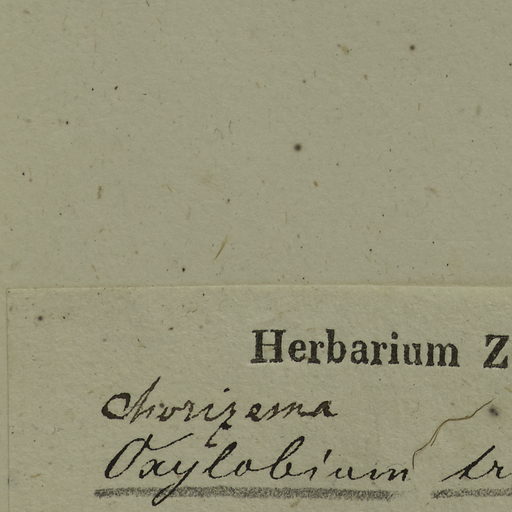 Herbarium Z
Chorizema
Oxylobium tr